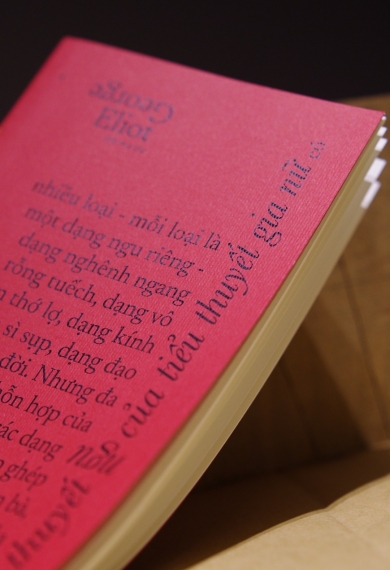 George
Eliot
nhiều loại - mỗi loại là
một dạng ngu riêng -
dạng nghênh ngang
rỗng tuếch, dạng vô
thớ lợ, dạng kính
sì sụp, dạng đạo
đời. Nhưng đa
hỗn hợp của
các dạng
ghép
bà.
thuyết
nơi
của tiểu thuyết gia nữ